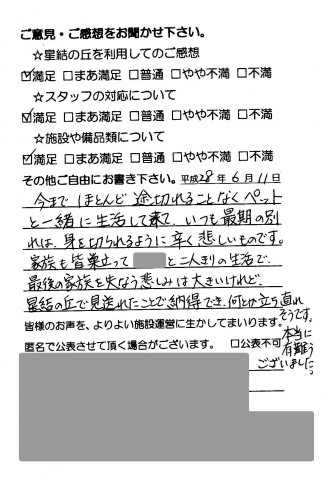 ご意見・ご感想をお聞かせ下さい。
☆星結の丘を利用してのご感想
☑満足 □まあ満足 □普通 □やや不満 □不満
☆スタッフの対応について
☑満足 □まあ満足 □普通 □やや不満 □不満
☆施設や備品類について
☑満足 □まあ満足 □普通 □やや不満 □不満
その他ご自由にお書き下さい。平成28年6月11日
今まで ほとんど 途切れることなくペット
と一緒に生活して来て、いつも最期の別
れは、身を切られるように辛く悲しいものです。
家族も皆巣立って と二人きりの生活で、
最後の家族を失なう悲しみは大きいけれど、
星結の丘で見送れたことで納得でき、何とか立ち直れ
そうです。
本当に
有難う
ございました。
皆様のお声を、よりよい施設運営に生かしてまいります。
匿名で公表させて頂く場合がございます。 □公表不可